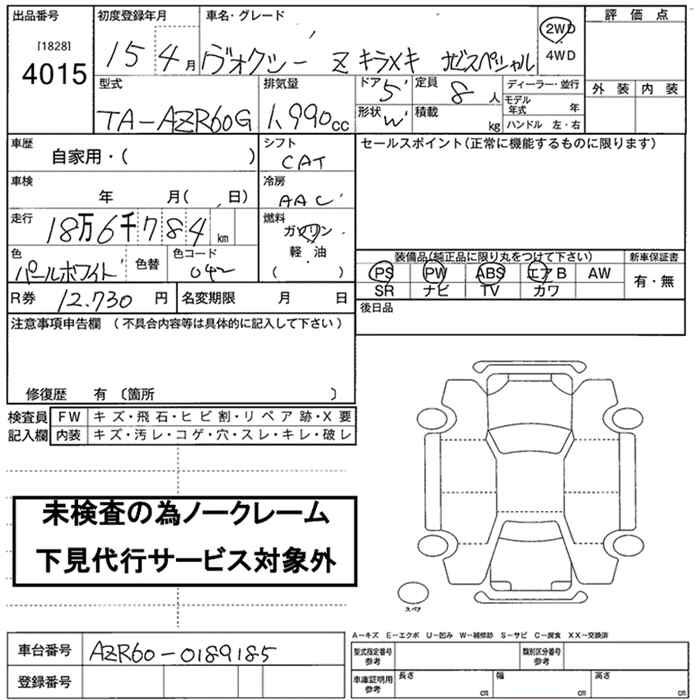 出品番号 初度登録年月 車名・グレード 評価点
[1828]
4015
15 4月 ヴォクシー Z キラメキ ゼスペシャル 2WD
4WD
型式 排気量 ドア 5 定員 8人 ディーラー・並行 外装 内装
TA-AZR60G 1,990cc 形状 W 積載 kg モデル年式 年
ハンドル 左・右
車歴 シフト セールスポイント(正常に機能するものに限ります)
自家用・( ) CAT
車検 冷房
年 月( 、日) AAC
走行 18万6千784km 燃料
ガソリン
軽・油
( )
色 色替 色コード 装備品(純正品に限り丸をつけて下さい) 新車保証書
パールホワイト 042 PS PW ABS エアB AW 有・無
SR ナビ TV カワ
R券 12.730 円 名変期限 月 日 後日品
注意事項申告欄 (不具合内容等は具体的に記入して下さい)
修復歴 有 〔箇所 〕
検査員 FW キズ・飛石・ヒビ割・リペア跡・X要
記入欄 内装 キズ・汚レ・コゲ・穴・スレ・キレ・破レ
未検査の為ノークレーム
下見代行サービス対象外
スペア
A-キズ E-エクボ U-凹み W-補修跡 S-サビ C-腐食 XX-交換済
車台番号 AZR60-0189185 型式指定番号 参考 類別区分番号 参考
登録番号 車庫証明用 参考 長さ cm 幅 cm 高さ cm